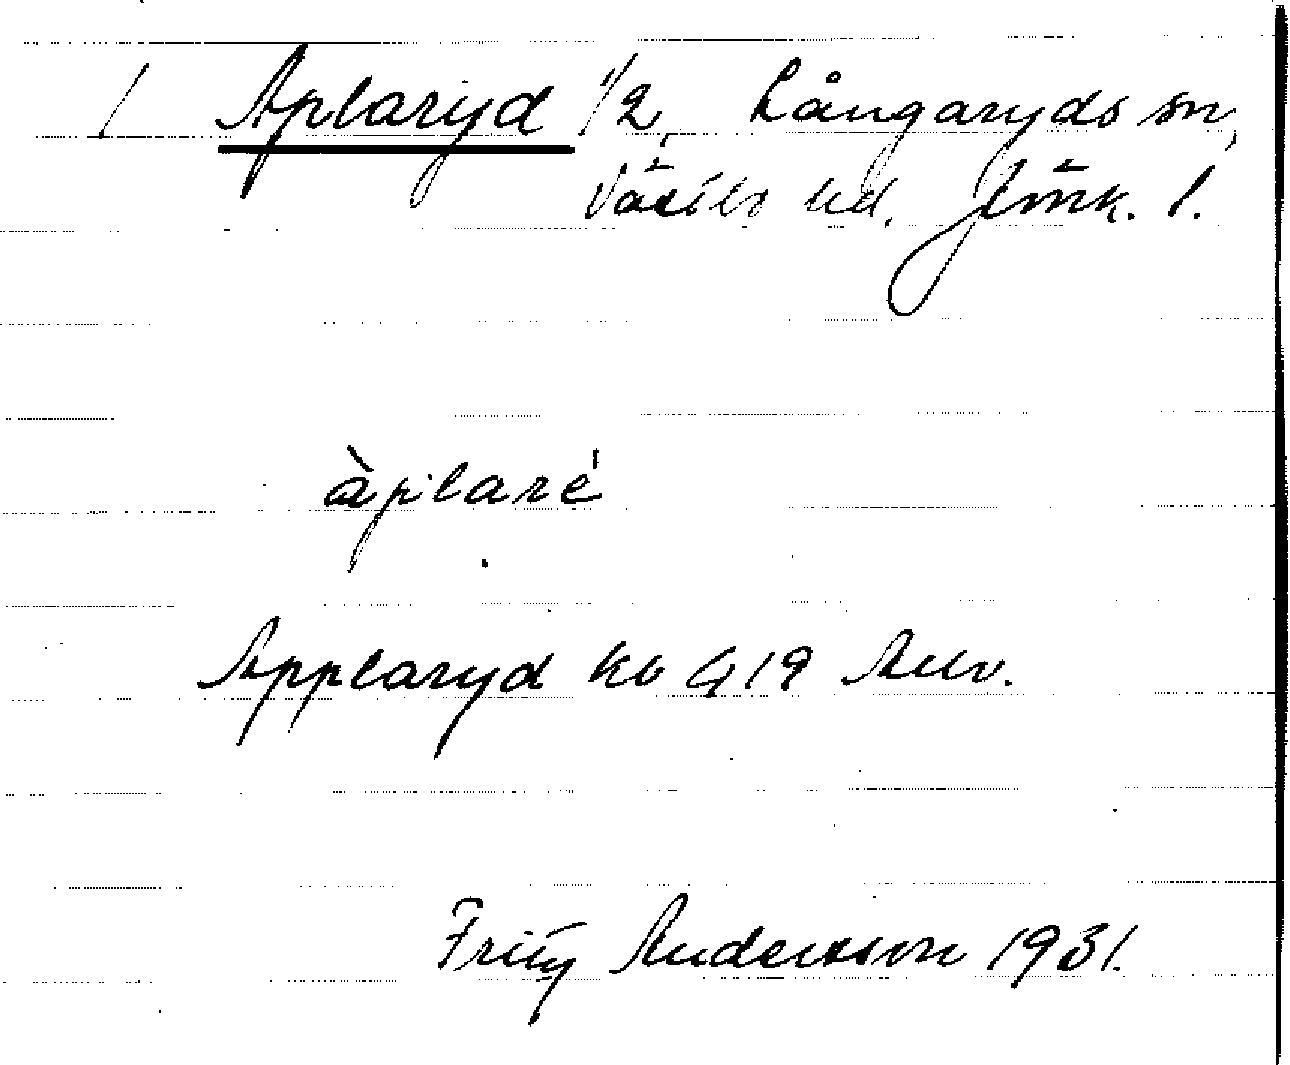 1 Aplaryd 1/2, Långaryds sn,
Västbo hd. Jönk. l.
àplaré
Applaryd kb G 19
Fritz Andersson 1931.